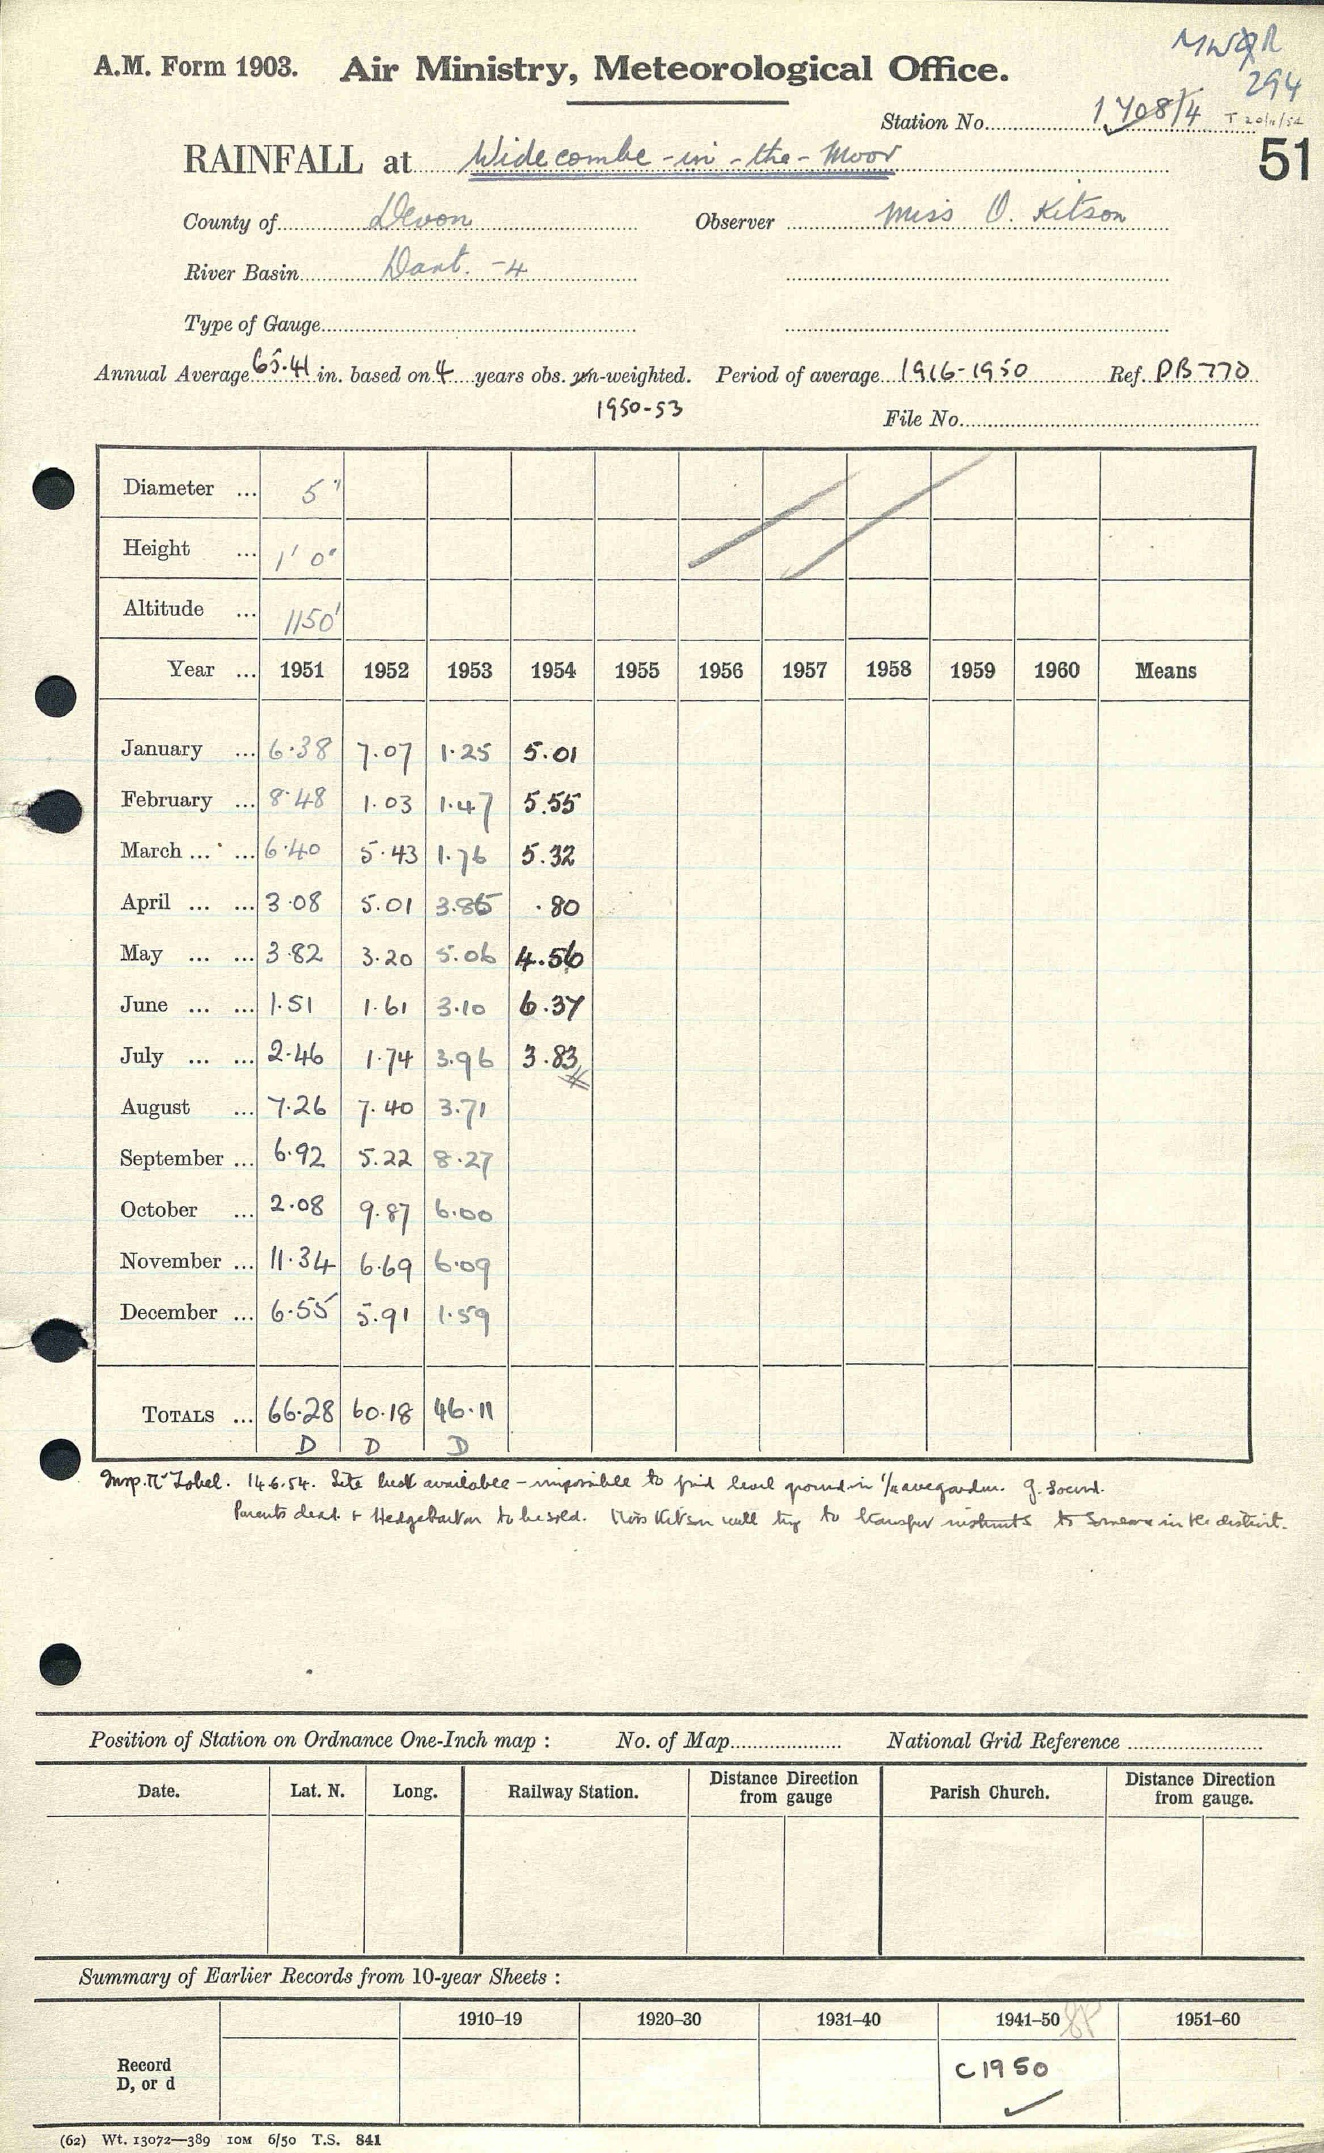 MWQR
294
A.M. Form 1903. Air Ministry, Meteorological Office.
Station No. 1708/4 T 20/11/54
RAINFALL at Widecombe-in-the-Moor 51
County of Devon Observer Miss O. Kitson
River Basin Dart. -4
Type of Gauge
Annual Average 65.41 in. based on 4 years obs. un-weighted. Period of average 1916-1950 Ref. DB770
1950-53 File No.
Diameter ... 5"
Height ... 1' 0"
Altitude ... 1150'
Year ... 1951 1952 1953 1954 1955 1956 1957 1958 1959 1960 Means
January ... 6.38 7.07 1.25 5.01
February ... 8.48 1.03 1.47 5.55
March ... ... 6.40 5.43 1.76 5.32
April ... ... 3.08 5.01 3.85 .80
May ... ... 3.82 3.20 5.06 4.56
June ... ... 1.51 1.61 3.10 6.37
July ... ... 2.46 1.74 3.96 3.83
August ... 7.26 7.40 3.71
September ... 6.92 5.22 8.27
October ... 2.08 9.87 6.00
November ... 11.34 6.69 6.09
December ... 6.55 5.91 1.59
TOTALS ... 66.28 60.18 46.11
D D D
Insp. Mr Lobel. 14.6.54. Site best available - impossible to find level ground in garden.
Parents dead & Hedge Barton to be sold. Miss Kitson will try to transfer instmts to someone in the district.
Position of Station on Ordnance One-Inch map : No. of Map National Grid Reference
Date. Lat. N. Long. Railway Station. Distance Direction from gauge Parish Church. Distance Direction from gauge.
Summary of Earlier Records from 10-year Sheets :
1910–19 1920–30 1931–40 1941–50 1951–60
Record
D, or d
C1950
(62) Wt. 13072—389 10M 6/50 T.S. 841